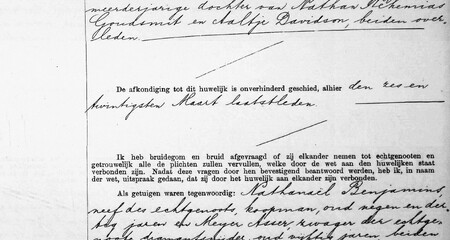 meerderjarige dochter van Nathan Nehemias
Goudsmit en Aaltje Davidson, beiden over-
leden.
De afkondiging tot dit huwelijk is onverhinderd geschied, alhier den zes en
twintigsten Maart laatstleden.
Ik heb bruidegom en bruid afgevraagd of zij elkander nemen tot echtgenooten en
getrouwelijk alle de plichten zullen vervullen, welke door de wet aan den huwelijken staat
verbonden zijn. Nadat deze vragen door hen bevestigend beantwoord werden, heb ik, in naam
der wet, uitspraak gedaan, dat zij door het huwelijk aan elkander zijn verbonden.
Als getuigen waren tegenwoordig: Nathanaël Benjamins,
neef des echtgenoots, koopman, oud negen en der-
tig jaren en Meyer Asser, zwager der echtge-
noote diamantsnijder, oud vijftig jaren, beiden